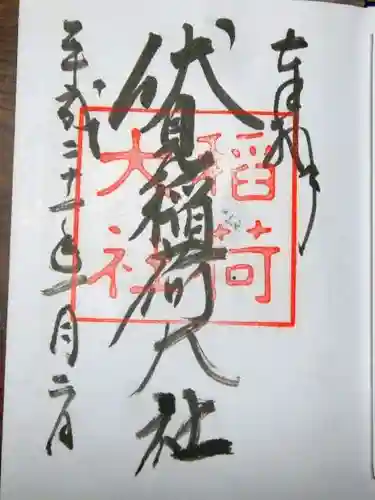 奉拝
伏見稲荷大社
稲荷
大社
平成二十一年一月二日